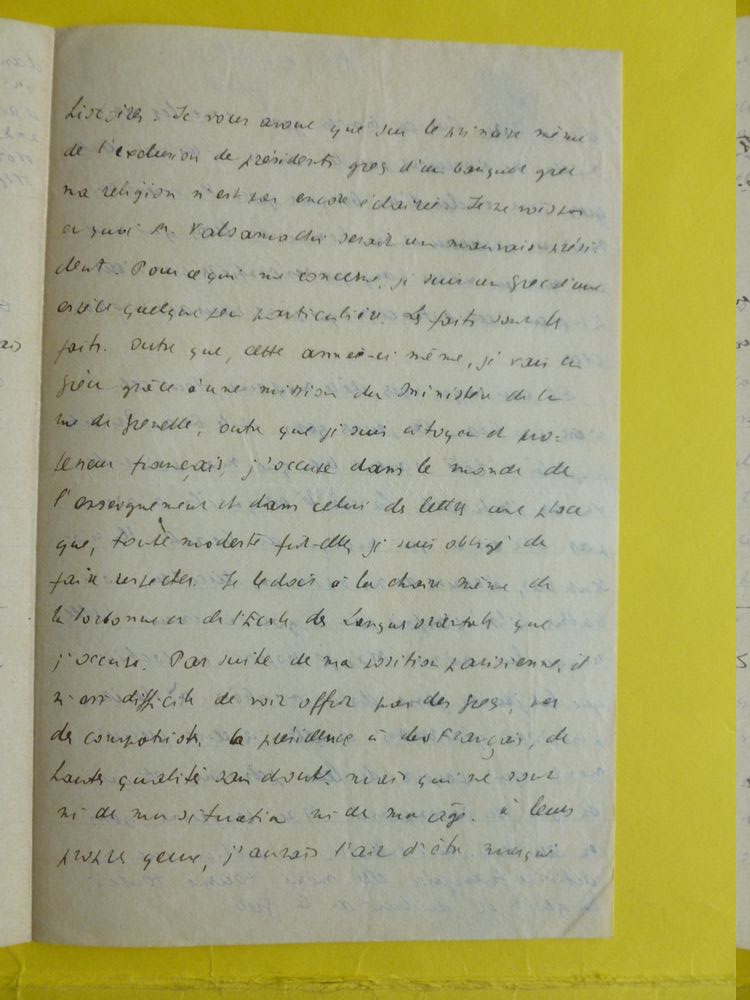 histoires. Je vous avoue que sur le principe même
de l'exclusion de présidents grecs d'un banquet grec
ma religion n'est pas encore éclairée. Je ne vois pas
en quoi M. Valsamachi serait un mauvais prési
dent. Pour ce qui me concerne, je suis un grec d'une
espèce quelque peu particulière. Les faits sont les
faits. Outre que, cette année-ci même, je vais en
Grèce grâce à une mission du Ministère de la
rue de Grenelle, outre que je suis citoyen et pro-
fesseur français, j'occupe dans le monde de
l'enseignement et dans celui des lettres une place
que, toute modeste fut-elle, je suis obligé de
faire respecter. Je le dois à la chaire même de
la Sorbonne et de l'Ecole des Langues orientales que
j'occupe. Par suite de ma position parisienne, il
m'est difficile de voir offrir par des grecs, par
des compatriotes, la présidence à des Français, de
hautes qualités sans doute, mais qui ne sont
ni de ma situation ni de mon âge. à leurs
propres yeux, j'aurais l'air d'être